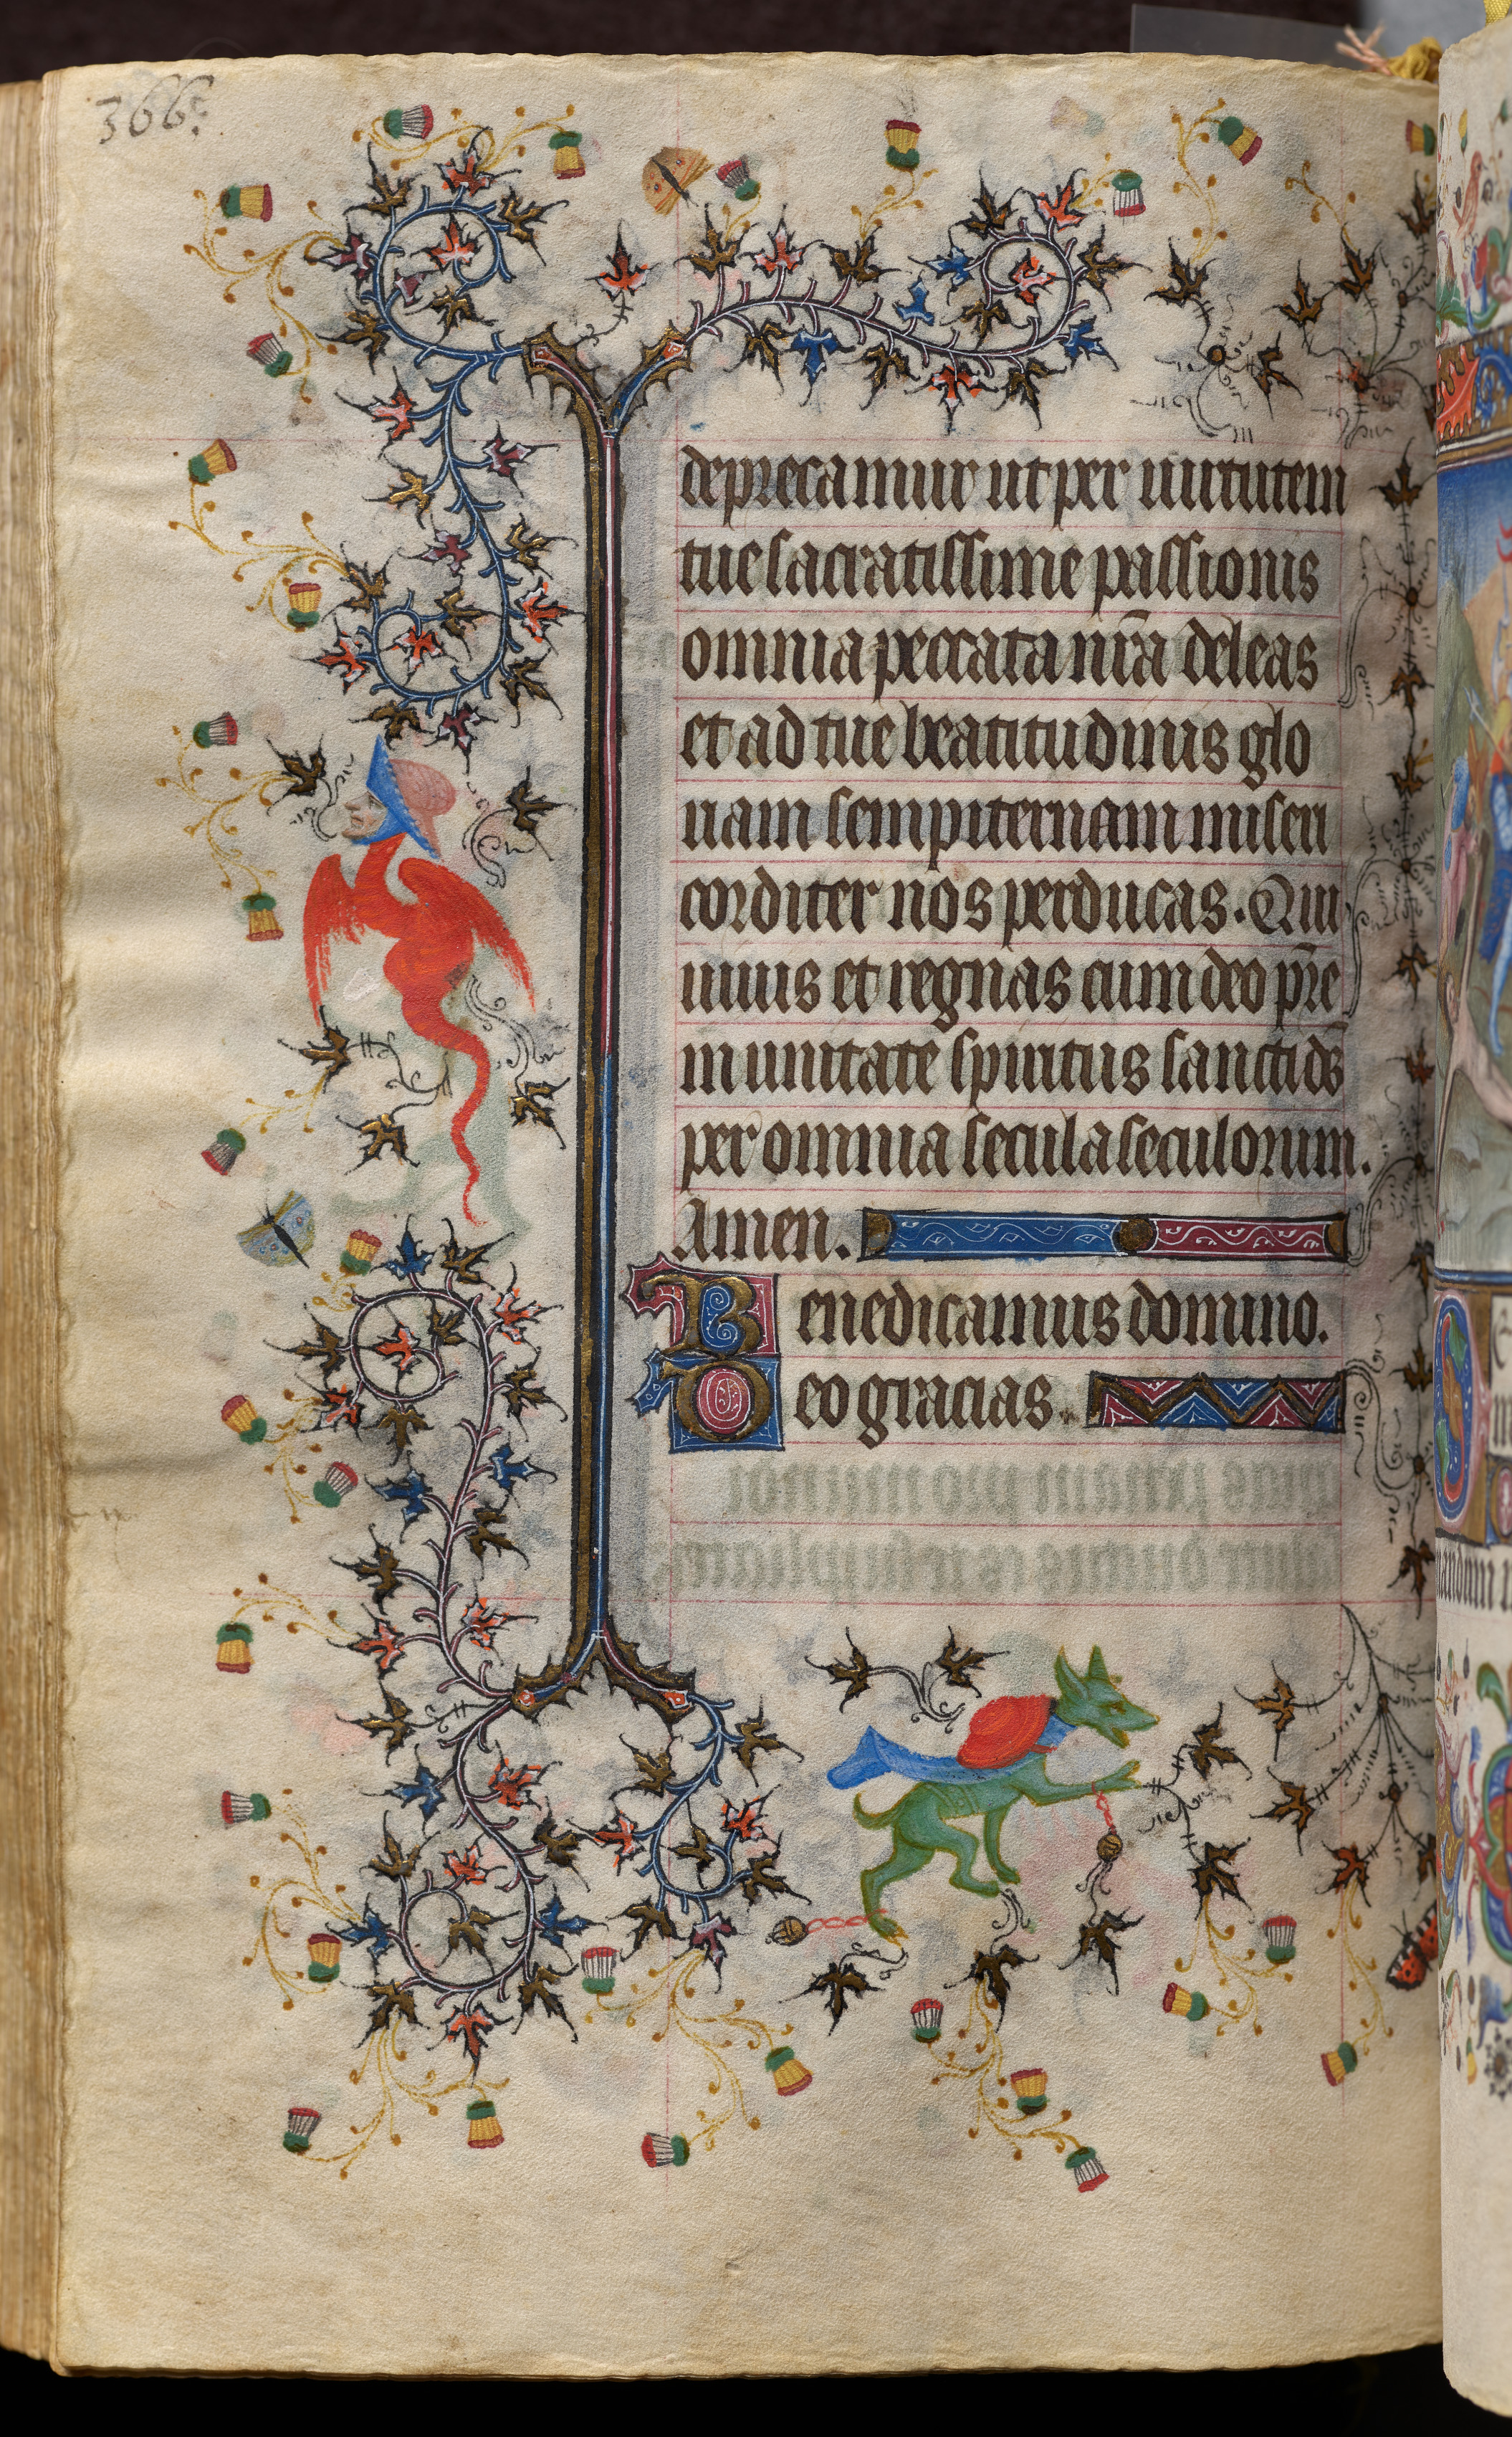 366:
deprecamur ut per uirtutem
tue sacratissime passionis
omnia peccata nr̄a deleas
et ad tue beatitudinis glo
riam sempiternam miseri
corditer nos perducas. Qui
uiuis et regnas cum deo pr̄e
in unitate spiritus sancti ds̄
per omnia secula seculorum.
Amen.
Benedicamus domino.
Deo gracias.